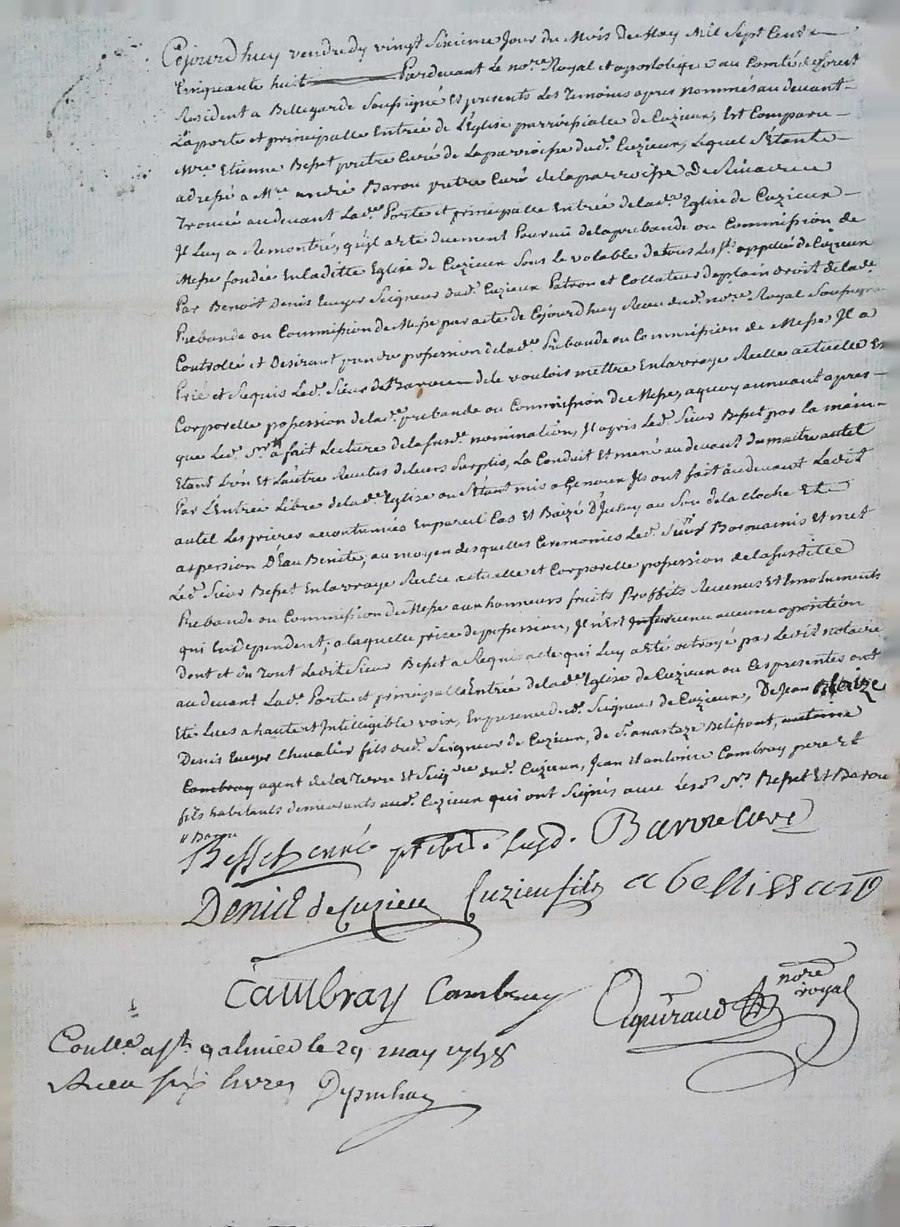 Cejourdhuy vendredy vingt Sixieme Jour du Mois de May Mil Sept Cent
Cinquante huit Pardevant Le no.re Royal et apostolique au Comté de forest
Resident a Bellegarde Soussigné Et presents Les Temoins apres nommés au devant
La porte et principalle Entrée de L'Eglise parroissialle de Cuzieux, Est Comparu
M.re Etienne Besset pretre Curé de la parroisse dud. Cuzieux, Lequel S'étant
adressé a M.re andré Barou pretre Curé de la parroisse De
Trouvé au devant Lad.e Porte et principalle Entrée de lad.e Eglise de Cuzieux
Il Luy a Remontré, qu'il a eté duement Pourvû de la prebande ou Commission de
Messe fondée En laditte Eglise de Cuzieux Sous le vocable de tous Les S.ts appellée de Cuzieux
Par Benoit Denis Ecuyer Seigneur dud. Cuzieux Patron et Collateur de plain droit de lad.e
Prebande ou Commission de Messe par acte de Cejourdhuy Receu dud. no.re Royal Soussigné
Controllé et Desirant prendre possession de lad.e Prebande ou Commission de Messe Il a
Prié et Requis Led. Sieur de Barou de le vouloir mettre En la vraye Réelle actuelle Et
Corporelle possession de lad.e prebande ou Commission de Messe, a quoy annuant apres
que Led. S.r a fait Lecture de la susd.e nomination, Il a pris Led. Sieur Besset par la main
Etant L'un Et L'autre Revetus de leurs Surplis, La Conduit Et mené au devant du maitre autel
Par L'Entrée Libre de lad.e Eglise ou S'étant mis a Genoux Ils ont fait au devant Ledit
autel Les prieres accoutumées En pareil Cas et Baizé D'Iceluy au Son de la cloche Et
aspersion D'Eau Benite, au moyen desquelles Ceremonies Led. Sieur Barou a mis Et met
Led. Sieur Besset En la vraye Réelle actuelle et Corporelle possession de la Susditte
Prebande ou Commission de Messe aux honneurs fruits Proffits Revenus Et Emoluments
qui En dependent; a laquelle prise de possession, Il n'Est Survenu aucune aposition
Dont et du Tout Ledit Sieur Besset a Requis acte qui Luy a eté octroyé par Ledit notaire
au devant Lad.e Porte et principalle Entrée de lad.e Eglise de Cuzieux ou Ces presentes ont
Eté Lües a haute et Intelligible voix, En presence dud. Seigneur de Cuzieux, De Jean Blaize
Denis Ecuyer Chevalier fils dud. Seigneur de Cuzieux, de S.r anastaze Belissant,
agent de la Terre et Seig.rie dud. Cuzieux, Jean et antoine Cambray pere Et
fils habitants demeurants aud. Cuzieux qui ont Signés avec Lesd. S.rs Besset Et Barou
// Barou
Besset curé Barou Curé
Denis de Cuzieu Cuzieu fils a bellissant
Cambray Cambray
no.re royal
Con.lle a S.t galmier le 29 may 1758
Receu six livres